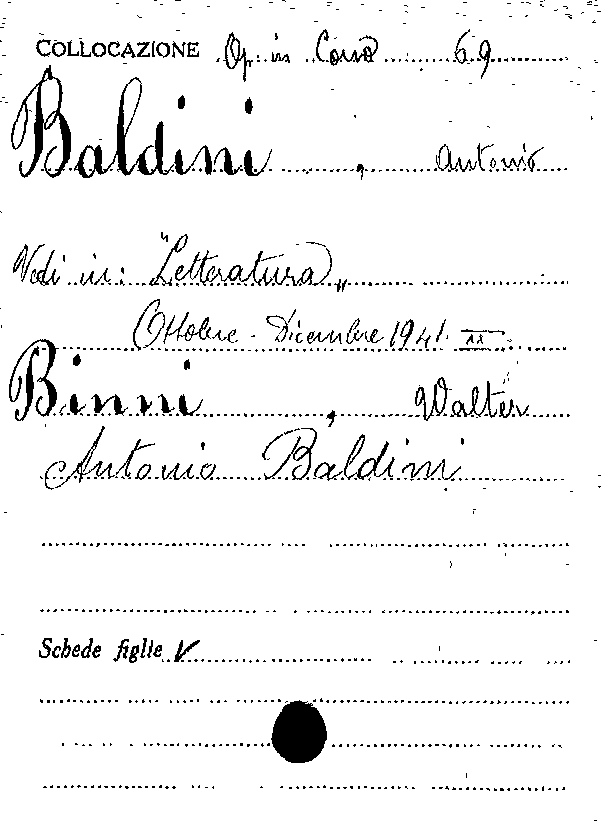 COLLOCAZIONE Op. in Corso 69
Baldini, Antonio
Vedi in: "Letteratura"
Ottobre - Dicembre 1941. XX.
Binni, Walter
Antonio Baldini
Schede figlie V